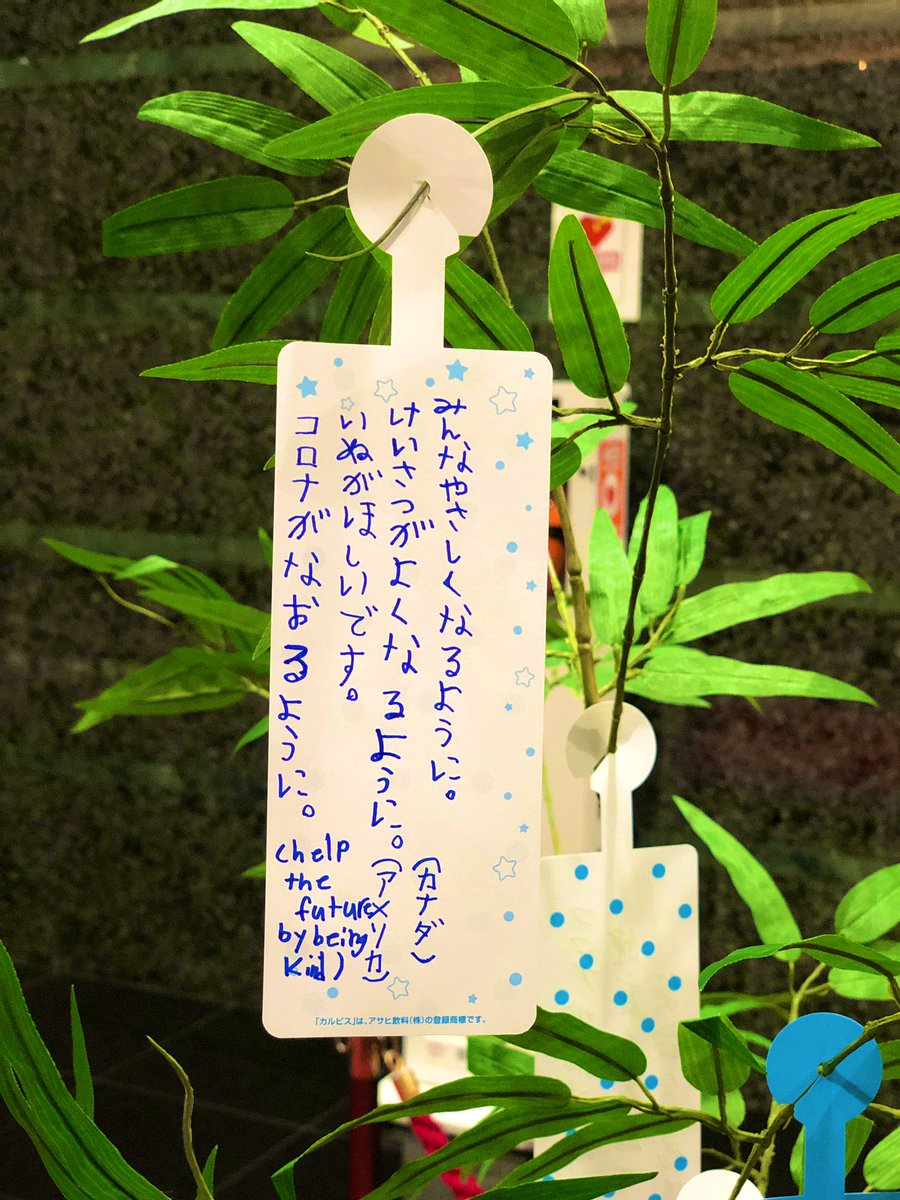 みんなやさしくなるように。
けいさつがよくなるように。
いぬがほしいです。
コロナがなおるように。
(カナダ)
(アメリカ)
(help
the
future
by being
kind)
「カルピス」は、アサヒ飲料(株)の登録商標です。